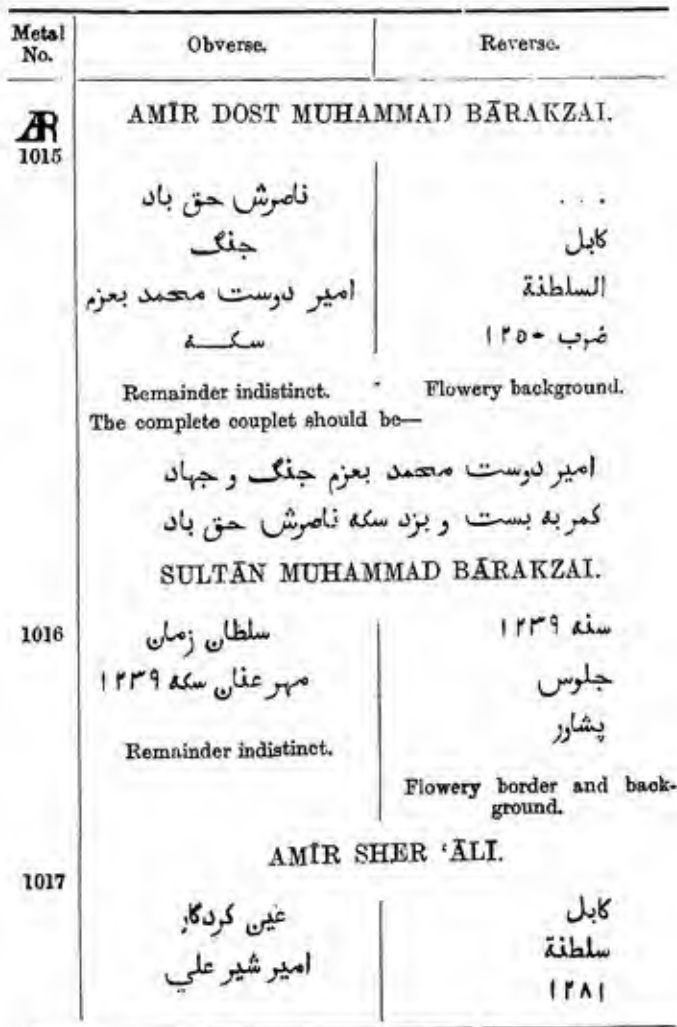 Metal No. Obverse. Reverse.
AMĪR DOST MUHAMMAD BĀRAKZAI.
Ꜻ
1015
ناصرش حق باد
جنگ
امیر دوست محمد بعزم
سکــه
Remainder indistinct.
. . .
کابل
السلطنة
ضرب ١٢٥٠
Flowery background.
The complete couplet should be—
امیر دوست محمد بعزم جنگ و جهاد
کمر به بست و بزد سکه ناصرش حق باد
SULTĀN MUHAMMAD BĀRAKZAI.
1016
سلطان زمان
مهر عفان سکه ١٢٣٩
Remainder indistinct.
سنه ١٢٣٩
جلوس
پشاور
Flowery border and back-
ground.
AMĪR SHER ‘ĀLI.
1017
عین کردگار
امیر شیر علي
کابل
سلطنة
١٢٨١